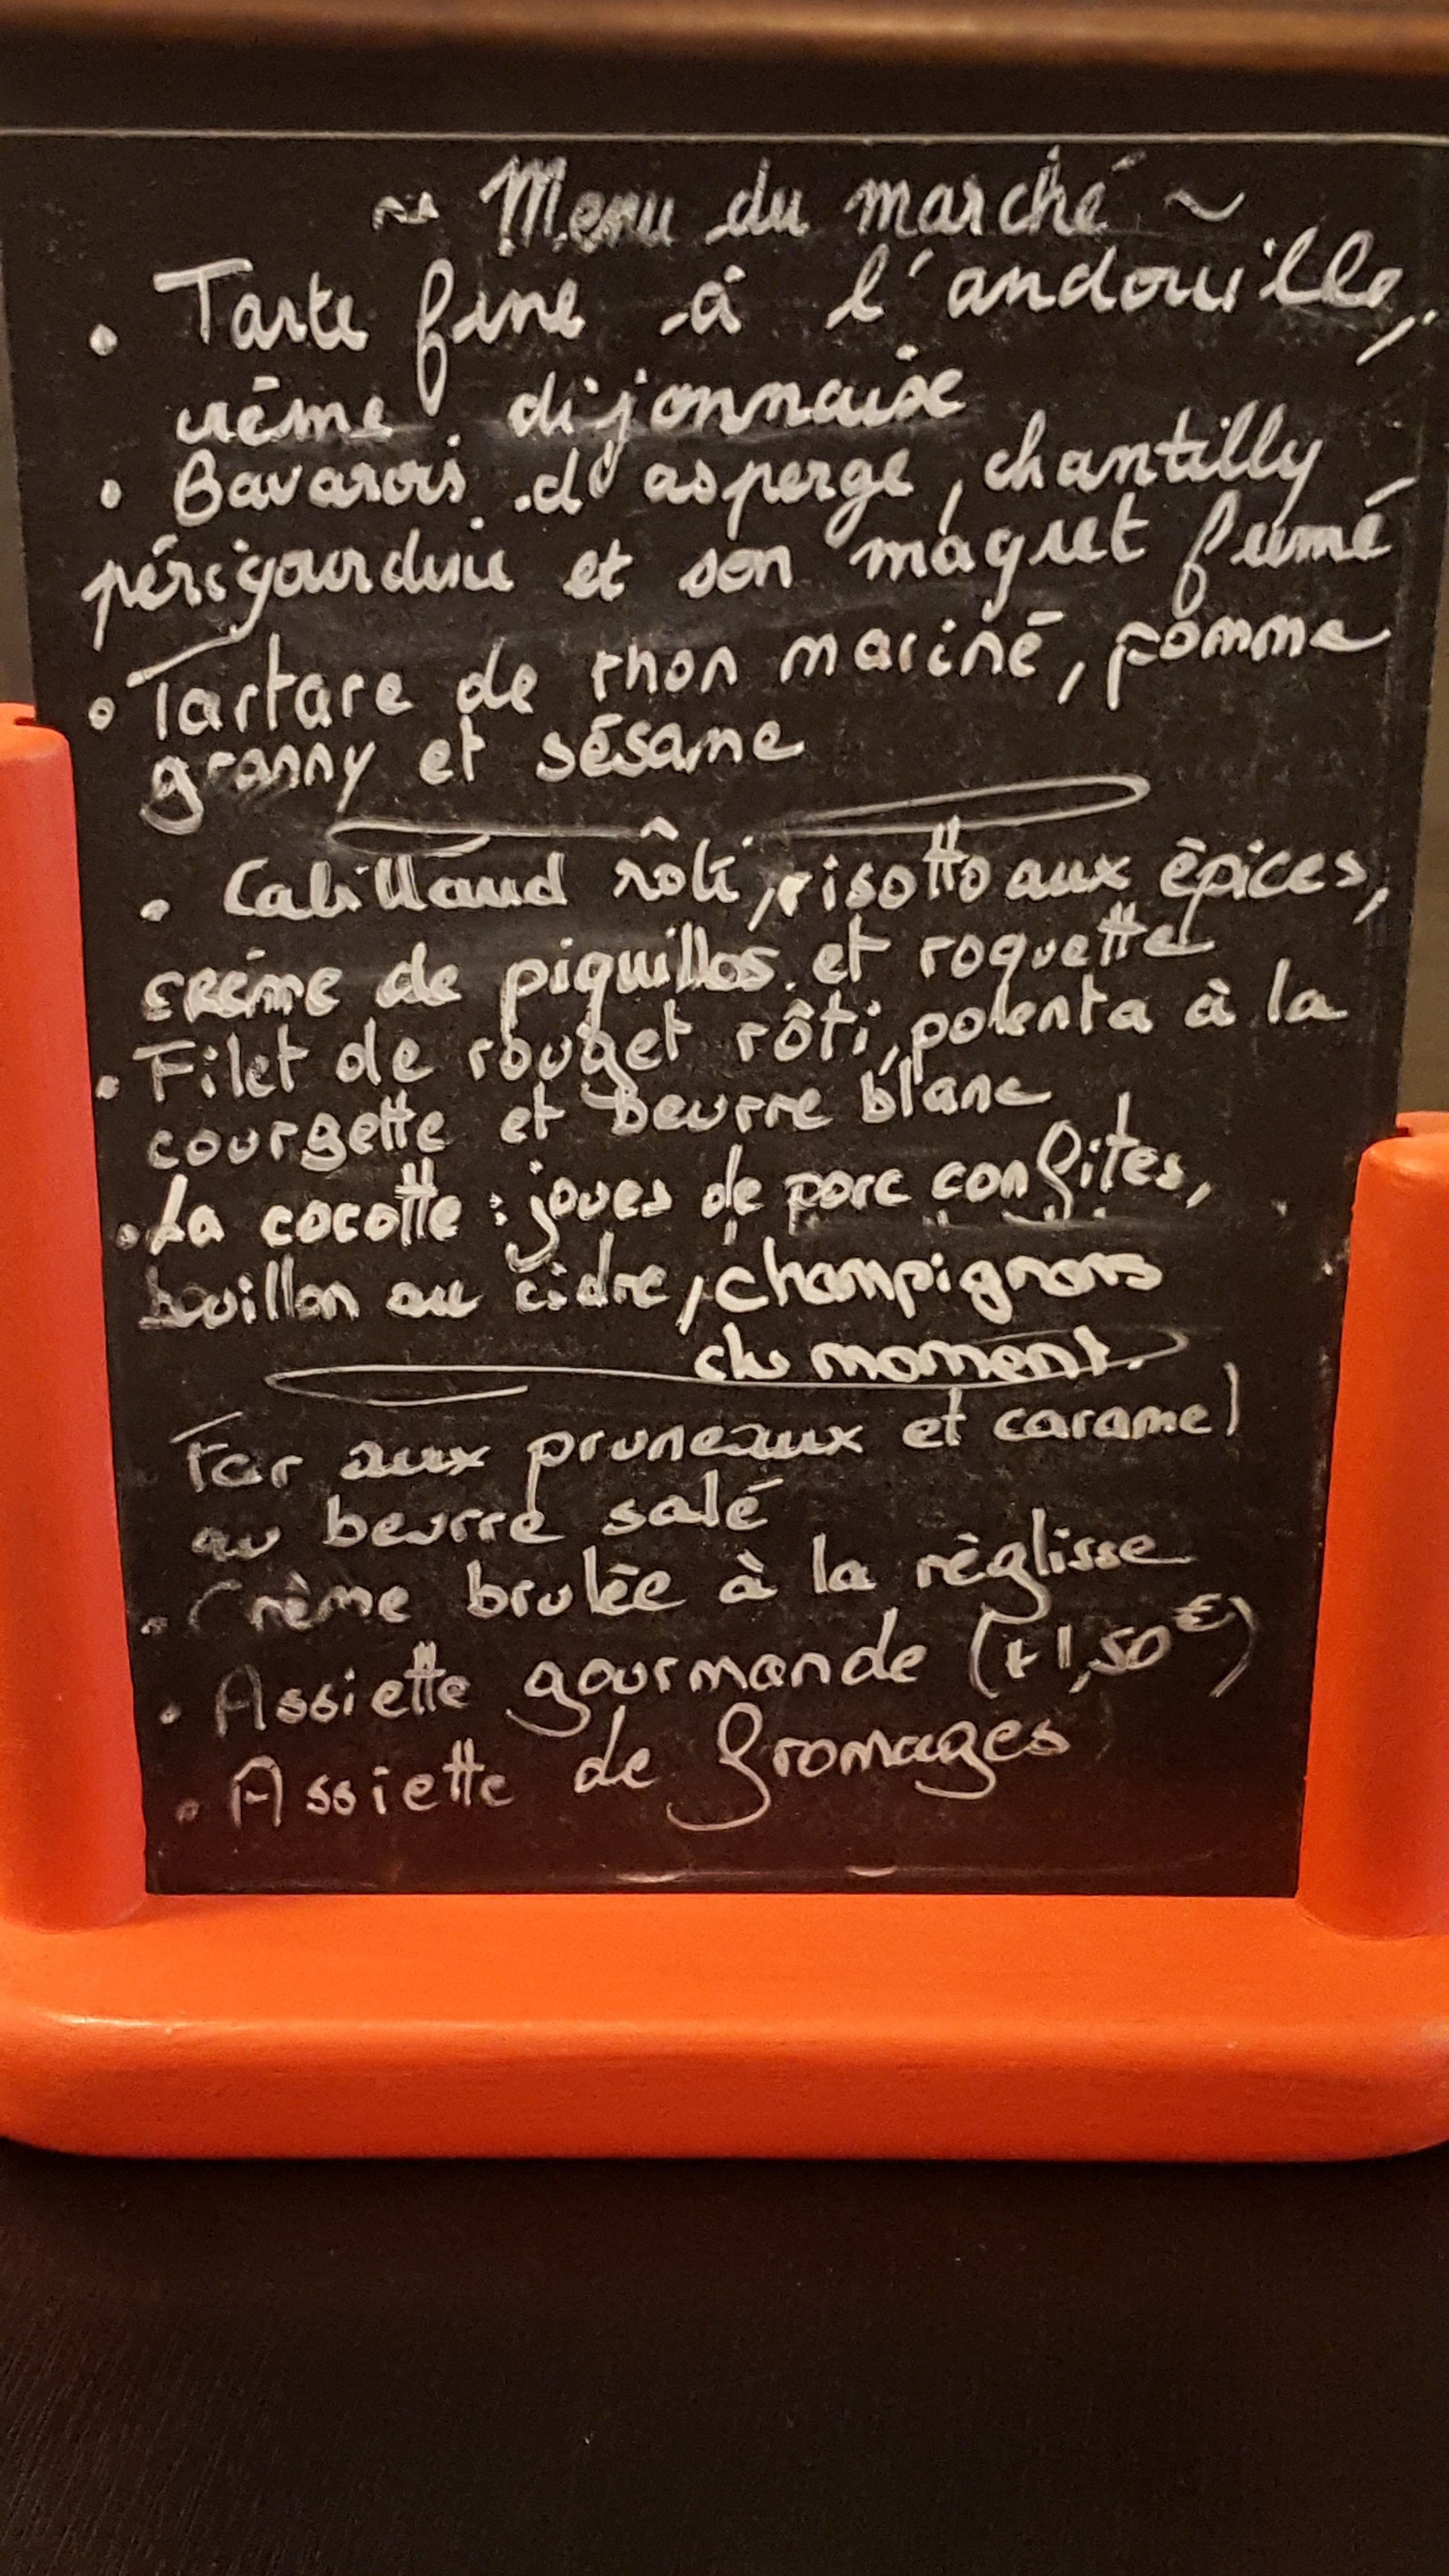 ~ Menu du marché ~
• Tarte fine à l'andouille,
crème dijonnaise
• Bavarois d'asperge, chantilly
périgourdine et son magret fumé
• Tartare de thon mariné, pomme
granny et sésame
• Cabillaud rôti, risotto aux épices,
crème de piquillos et roquette
• Filet de rouget rôti, polenta à la
courgette et beurre blanc
• La cocotte : joues de porc confites,
bouillon au cidre, champignons
du moment.
Far aux pruneaux et caramel
au beurre salé
• Crème brulée à la réglisse
• Assiette gourmande (+1,50€)
• Assiette de fromages